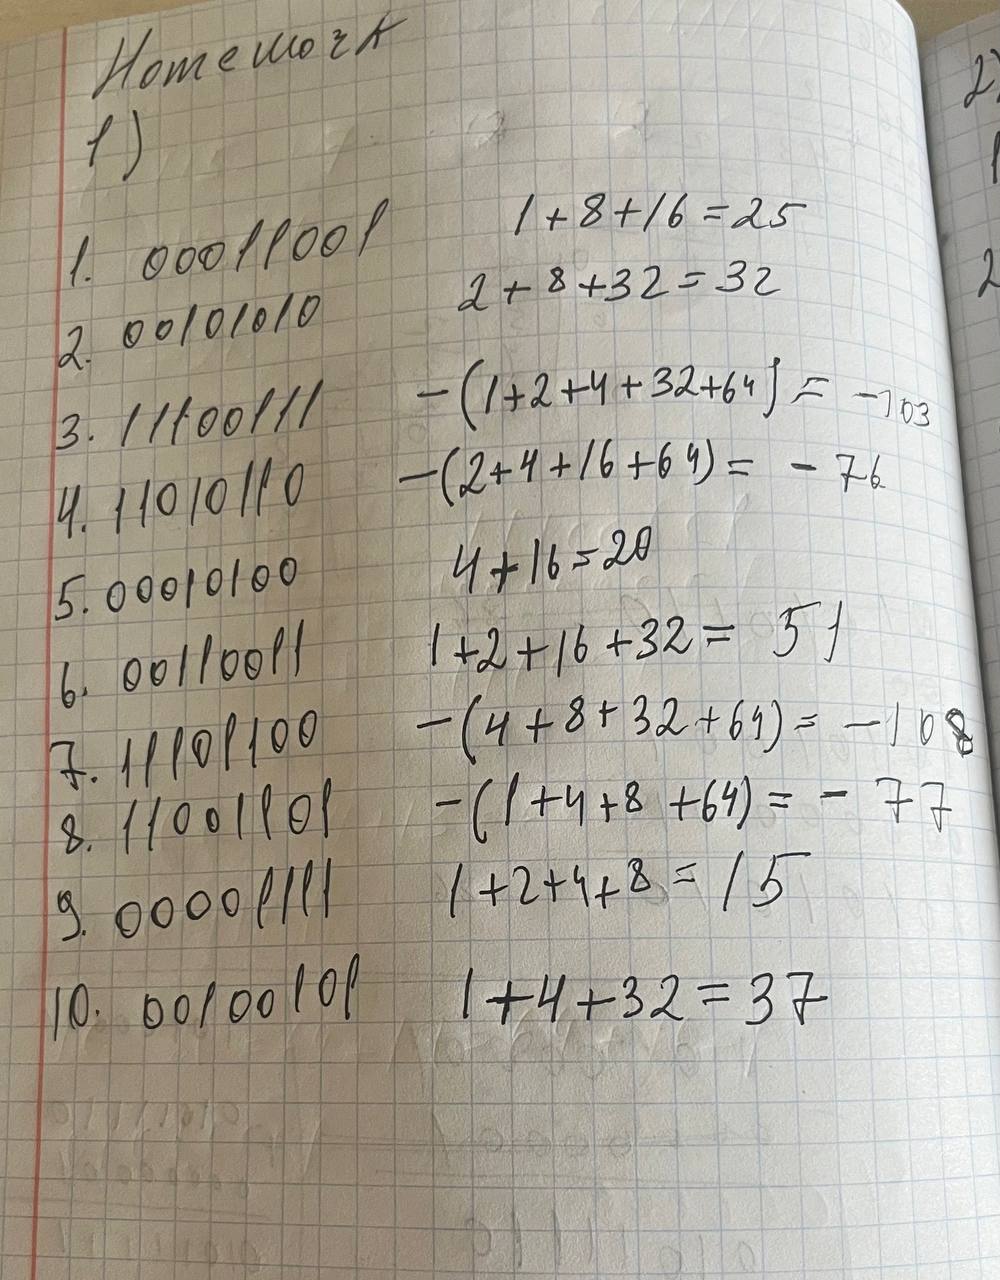 Homework
1)
1. 00011001 1+8+16=25
2. 00101010 2+8+32=32
3. 11100111 -(1+2+4+32+64)= -103
4. 11010110 -(2+4+16+64)= -76
5. 00010100 4+16=20
6. 00110011 1+2+16+32= 51
7. 11101100 -(4+8+32+64)= -108
8. 11001101 -(1+4+8+64)= -77
9. 00001111 1+2+4+8=15
10. 00100101 1+4+32=37